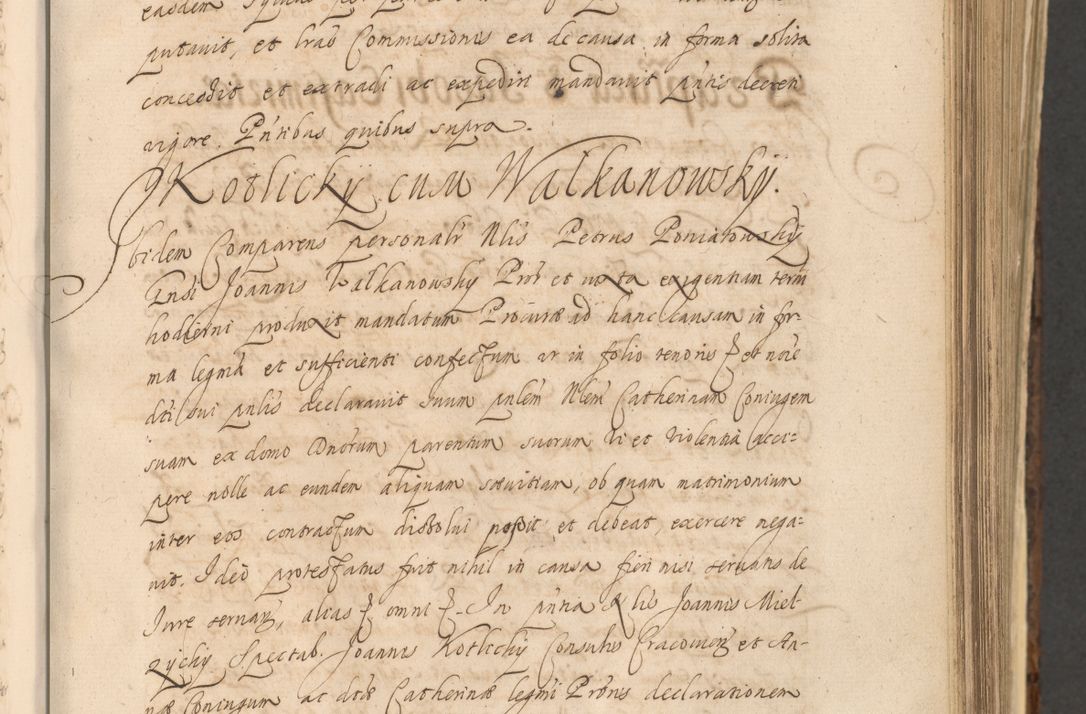 easdem
putavit, et lras Commissionis ea de causa in forma solita
concedit et extradi ac expediri mandavit pntis decreti
vigore. Pntibus quibus supra.
Kotlicky cum Walkanowsky.
Ibidem Comparens personalr Nlis Petrus Poniatowsky
Joannis Walkanowsky Pror et iuxta exigentiam termi
hodierni produxit mandatum Procurae ad hanc causam in for-
ma legma et sufficienti confectum ut in folio tenoris et noie
dti sui pnlis declaravit suum pnlem Nlem Catherinam Coniugem
suam ex domo Onorum parentum suorum vi et violentia acci-
pere nolle ac eandem aliquam saevitiam, ob quam matrimonium
inter eos contractum dissolui possit et debeat, exercere nega-
vit. Ideo protestatus fuit nihil in causa fieri nisi servatis de
Iure servan, alias omni. In pntia Joannis Miel-
zycky Spectab. Joannis Kotlicky Consulis Cracovien et An-
nae Coniugum ac dtae Catherinae legmi Proris declarationem